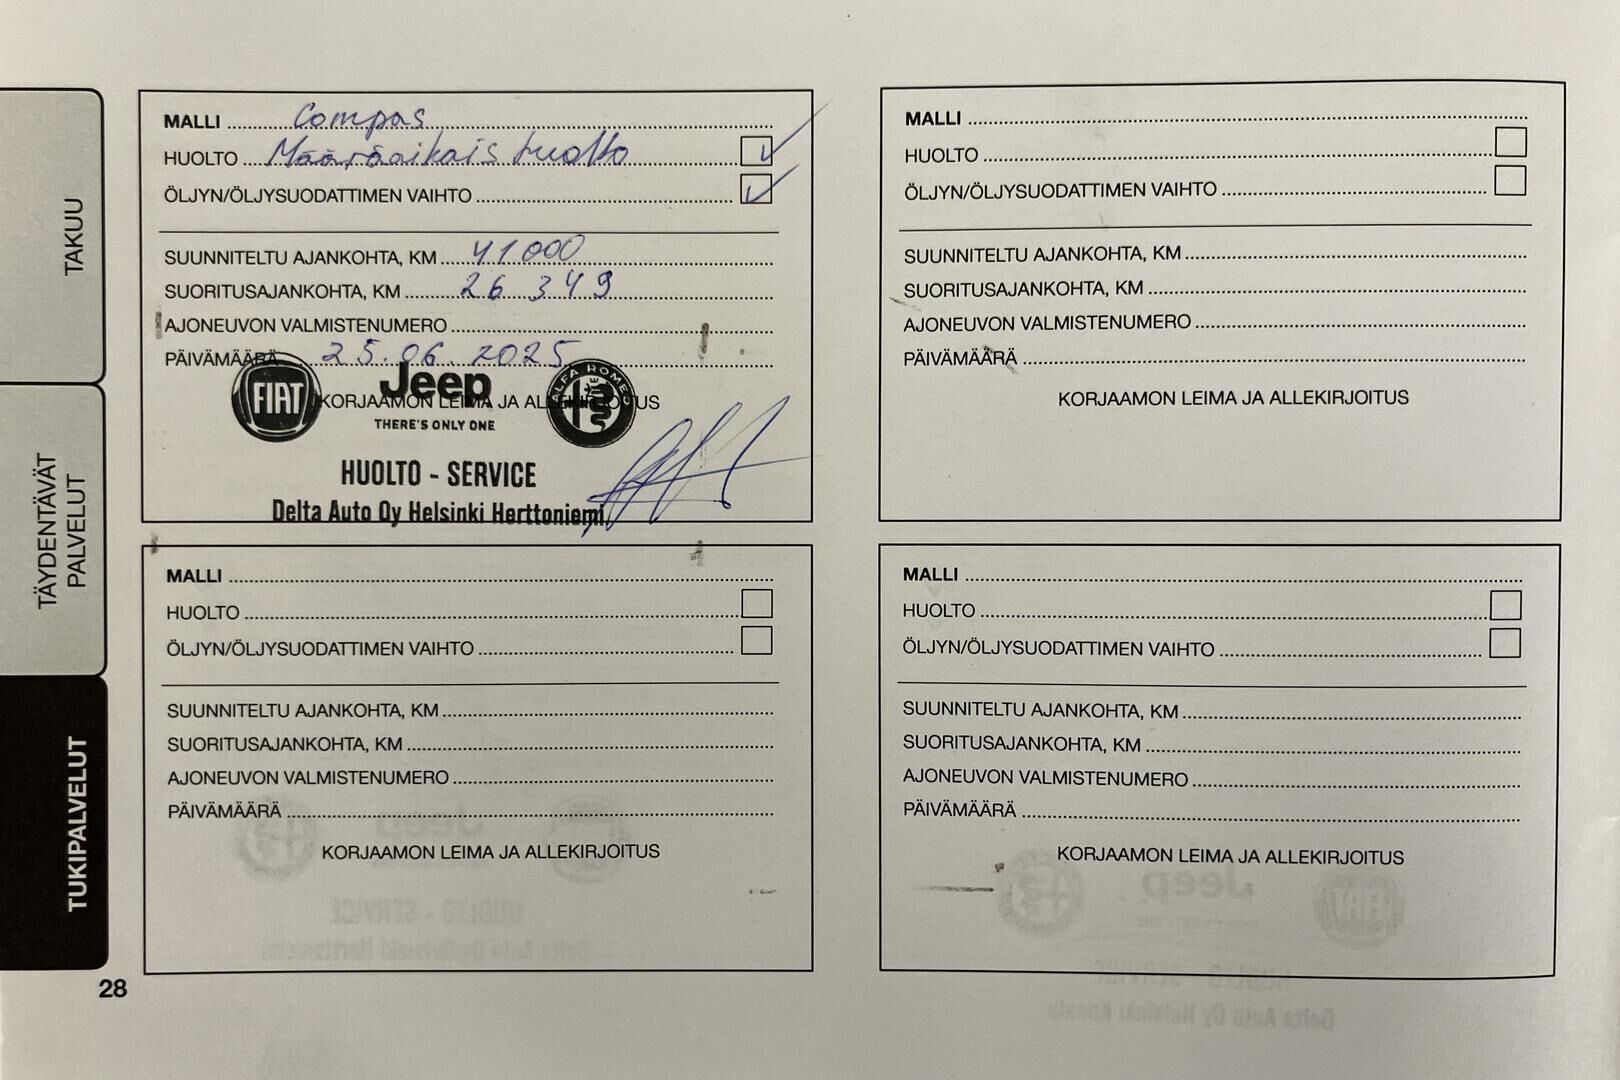 TAKUU
TÄYDENTÄVÄT
PALVELUT
TUKIPALVELUT
MALLI Compas
HUOLTO Määräaikais huolto
ÖLJYN/ÖLJYSUODATTIMEN VAIHTO
SUUNNITELTU AJANKOHTA, KM 41000
SUORITUSAJANKOHTA, KM 26 349
AJONEUVON VALMISTENUMERO
PÄIVÄMÄÄRÄ 25.06.2025
KORJAAMON LEIMA JA ALLEKIRJOITUS
FIAT
Jeep
ALFA ROMEO
THERE'S ONLY ONE
HUOLTO - SERVICE
Delta Auto Oy Helsinki Herttoniemi
MALLI
HUOLTO
ÖLJYN/ÖLJYSUODATTIMEN VAIHTO
SUUNNITELTU AJANKOHTA, KM
SUORITUSAJANKOHTA, KM
AJONEUVON VALMISTENUMERO
PÄIVÄMÄÄRÄ
KORJAAMON LEIMA JA ALLEKIRJOITUS
MALLI
HUOLTO
ÖLJYN/ÖLJYSUODATTIMEN VAIHTO
SUUNNITELTU AJANKOHTA, KM
SUORITUSAJANKOHTA, KM
AJONEUVON VALMISTENUMERO
PÄIVÄMÄÄRÄ
KORJAAMON LEIMA JA ALLEKIRJOITUS
MALLI
HUOLTO
ÖLJYN/ÖLJYSUODATTIMEN VAIHTO
SUUNNITELTU AJANKOHTA, KM
SUORITUSAJANKOHTA, KM
AJONEUVON VALMISTENUMERO
PÄIVÄMÄÄRÄ
KORJAAMON LEIMA JA ALLEKIRJOITUS
28